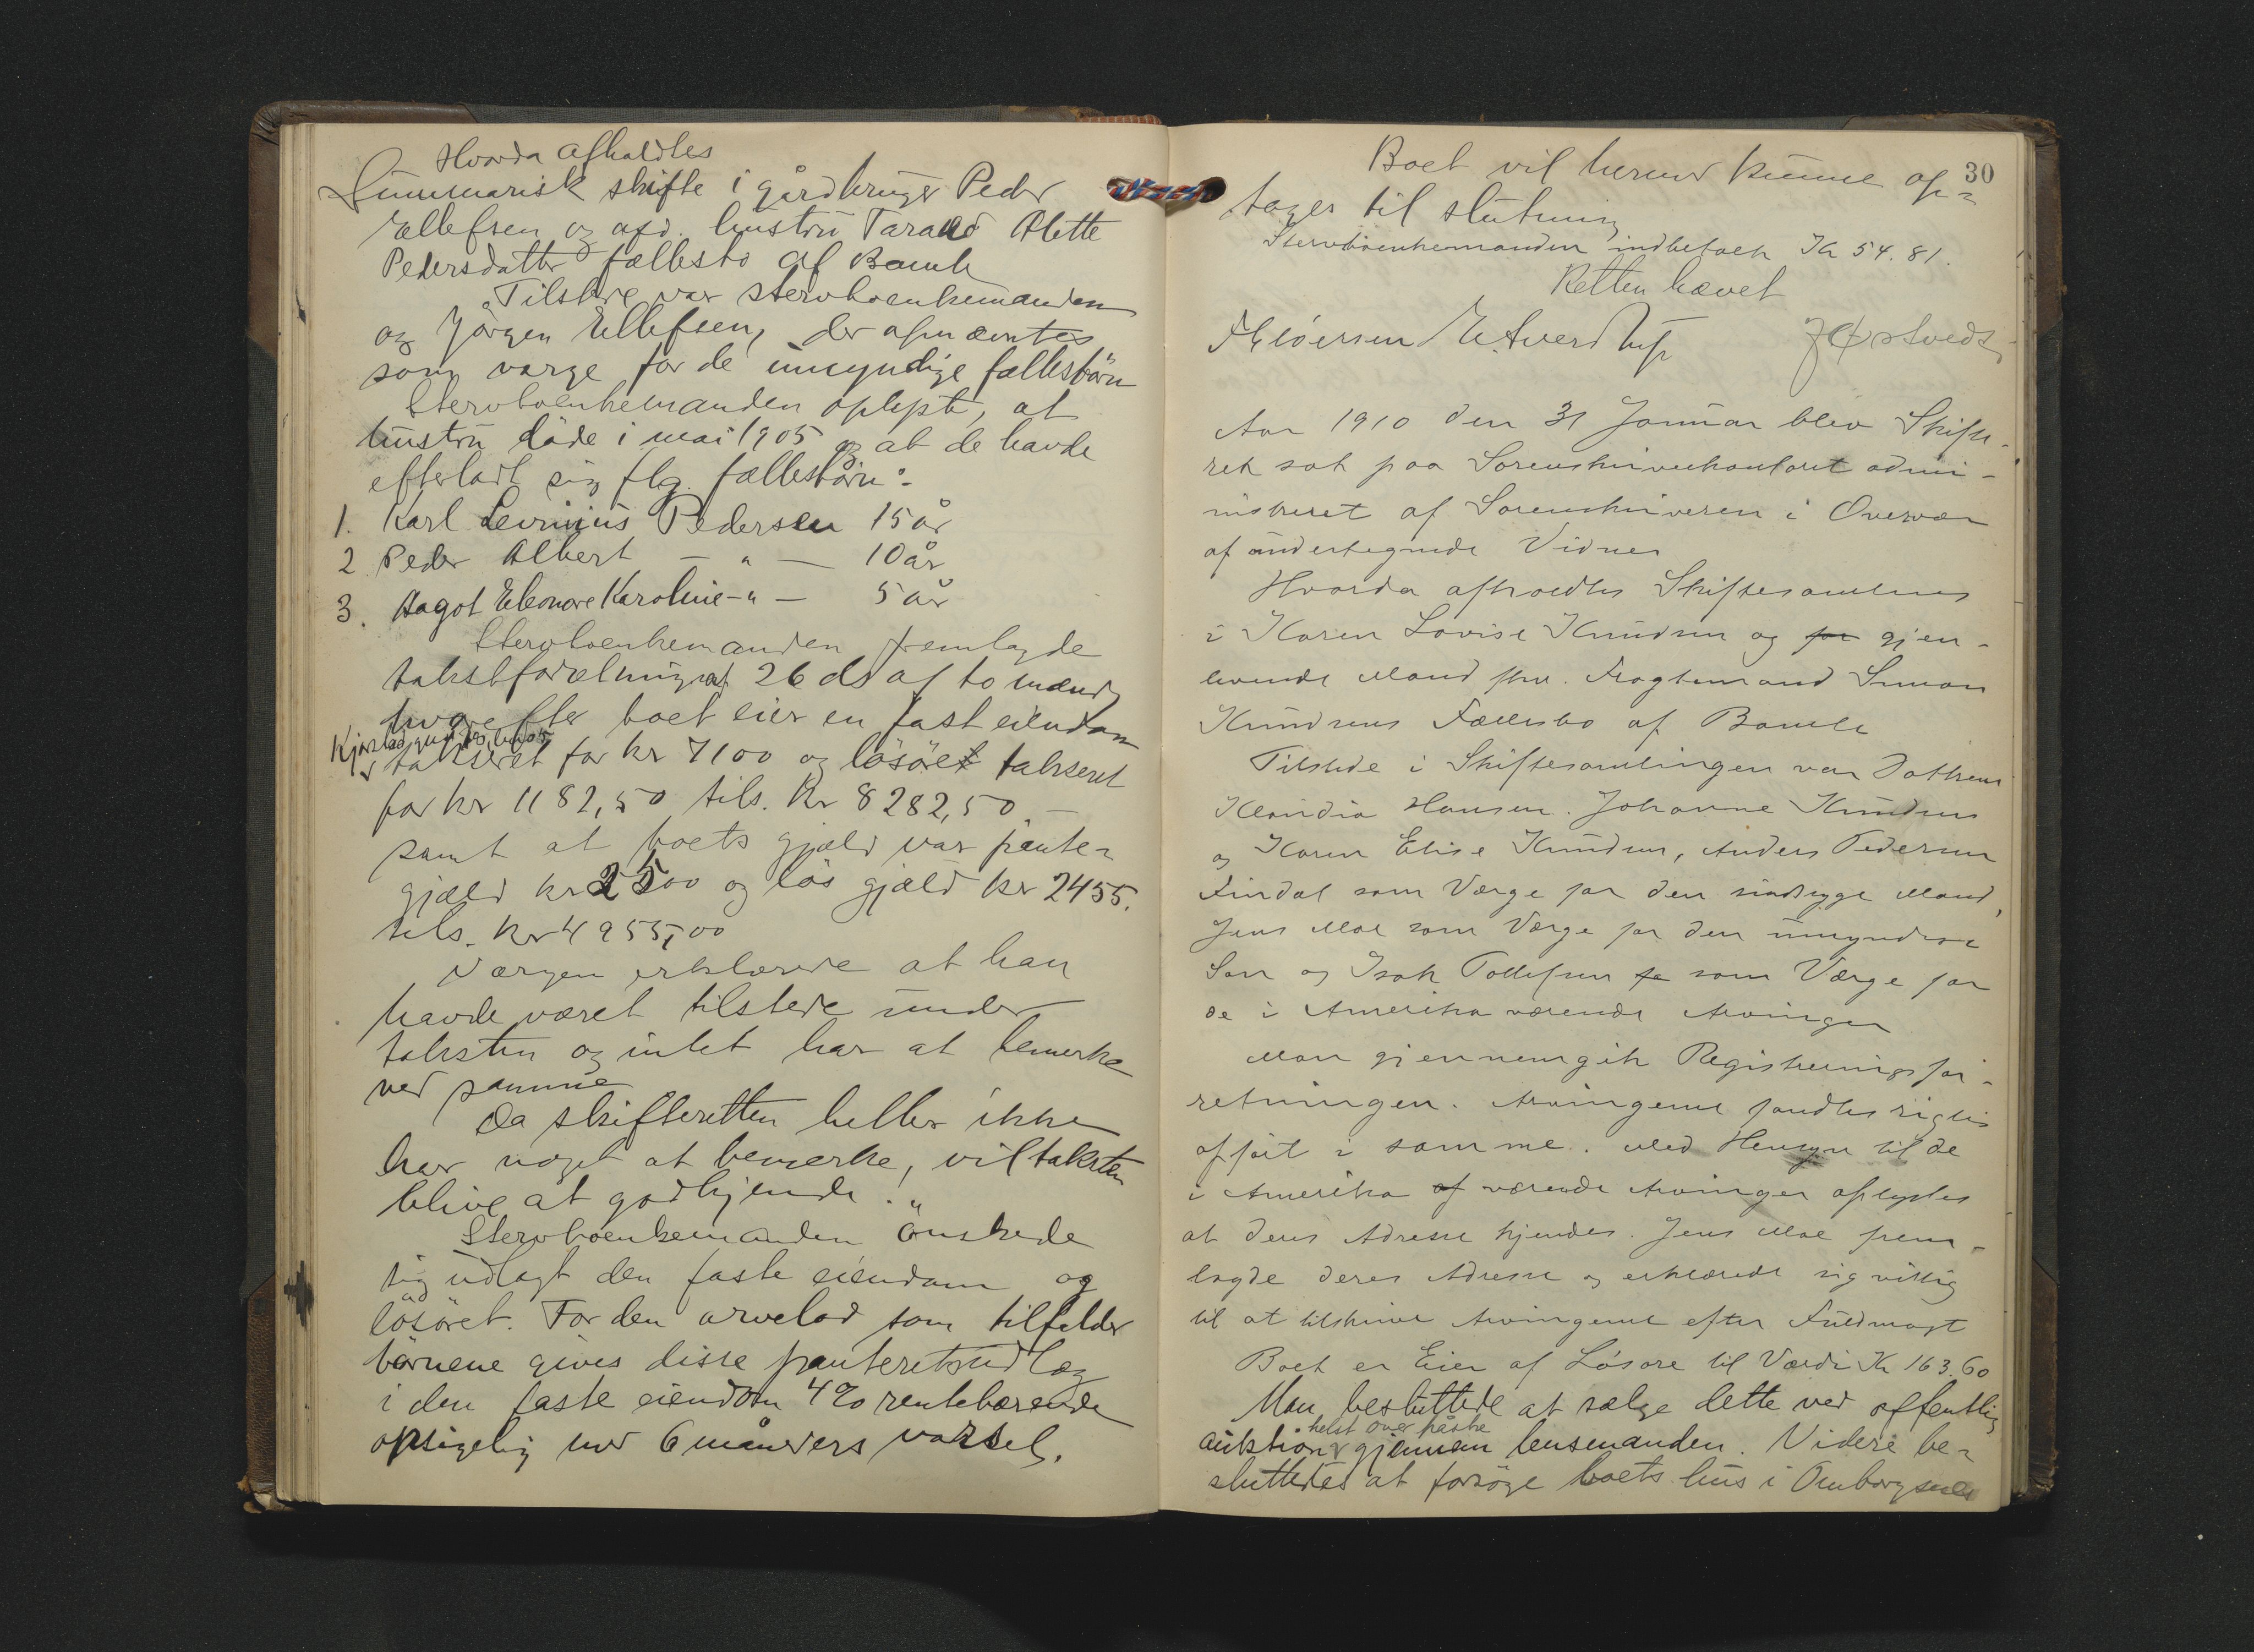 Hvorda afholdtes
Summarisk skifte i gårdbruger Peder
Ellefsen og afd. hustru Tarald Alette
Pedersdatter fællesbo af Bamle
Tilstede var stervboenkemanden
og Jörgen Ellefsen, der opnævntes
som værge for de umyndige fællesbörn
Stervboenkemanden oplyste, at
hustru döde i mai 1905 og at de havde
efterladt sig flg. fællesbörn:
1. Karl Levinius Pedersen 15 år
2. Peder Albert — " — 10 år
3. Aagot Eleonore Karoline — " — 5 år
Stervboenkemanden fremlagde
takstforretning af 26 ds af to mænd
hvorefter boet eier en fast eiendom
Kjøstad
takseret for kr 7100 og lösöret takseret
for kr 1182,50 tils. kr 8282,50 —
samt at boets gjæld var pante-
gjæld kr 2500 og lös gjæld kr 2455.
tils. kr 4955,00
Værgen erklærede at han
havde været tilstede under
taksten og intet har at bemerke
ved samme
Da skifteretten heller ikke
har noget at bemerke, vil taksten
blive at godkjende.
Stervboenkemanden önskede
sig udlagt den faste eiendom og
lösöret. For den arvelod som tilfalder
börnene gives disse panteretsudlæg
i den faste eiendom 4% rentebærende
opsigelig med 6 måneders varsel.
30
Boet vil herved kunne op-
tages til slutning
Stervboenkemanden indbetalte Kr 54.81.
Retten hævet
Aar 1910 den 31 Januar blev Skifte-
ret sat paa Sorenskriverkontoret admi-
nistreret af Sorenskriveren i Overvær
af undertegnede Vidner
Hvorda afholdtes Skiftesamling
i Karen Lovise Knudsen og for gjen-
levende Mand fhv. Fragtemand Simon
Knudsens Fællesbo af Bamle
Tilstede i Skiftesamlingen var Jathrine
Klaudia Hansen. Johanne Knudsen
og Karen Elise Knudsen, Anders Pedersen
Findal som Værge for den sindsyge Mand,
Jens Moe som Værge for den umyndige
Søn og Isak Tollefsen fo som Værge for
de i Amerika værende Arvinger
Man gjennemgik Registreringsfor-
retningen. Arvingerne fandtes rigtig
opført i samme. Med Hensyn til de
i Amerika af værende Arvinger oplystes
at deres Adresse kjendes. Jens Moe frem-
lagde deres Adresse og erklærede sig villig
til at tilskrive Arvingerne efter Fuldmagt
Boet er Eier af Løsøre til Værdi Kr 163.60
Man besluttede at sælge dette ved offentlig
helst over påske
auktion gjennem lensmanden. Videre be-
sluttedes at forsöge boets hus i Omborgsnes